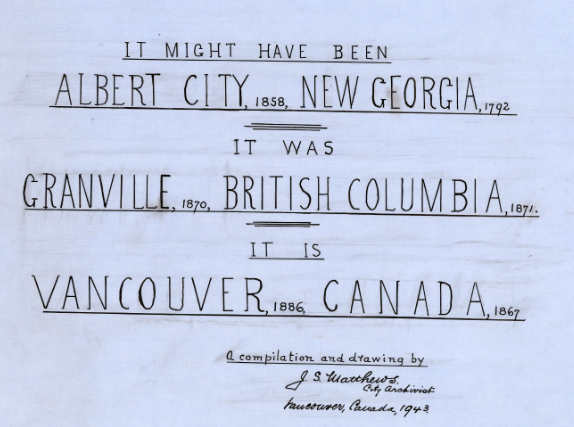 IT MIGHT HAVE BEEN
ALBERT CITY, 1858, NEW GEORGIA, 1792
IT WAS
GRANVILLE, 1870, BRITISH COLUMBIA, 1871.
IT IS
VANCOUVER, 1886, CANADA, 1867
A compilation and drawing by
J. S. Matthews.
City Archivist
Vancouver, Canada, 1943